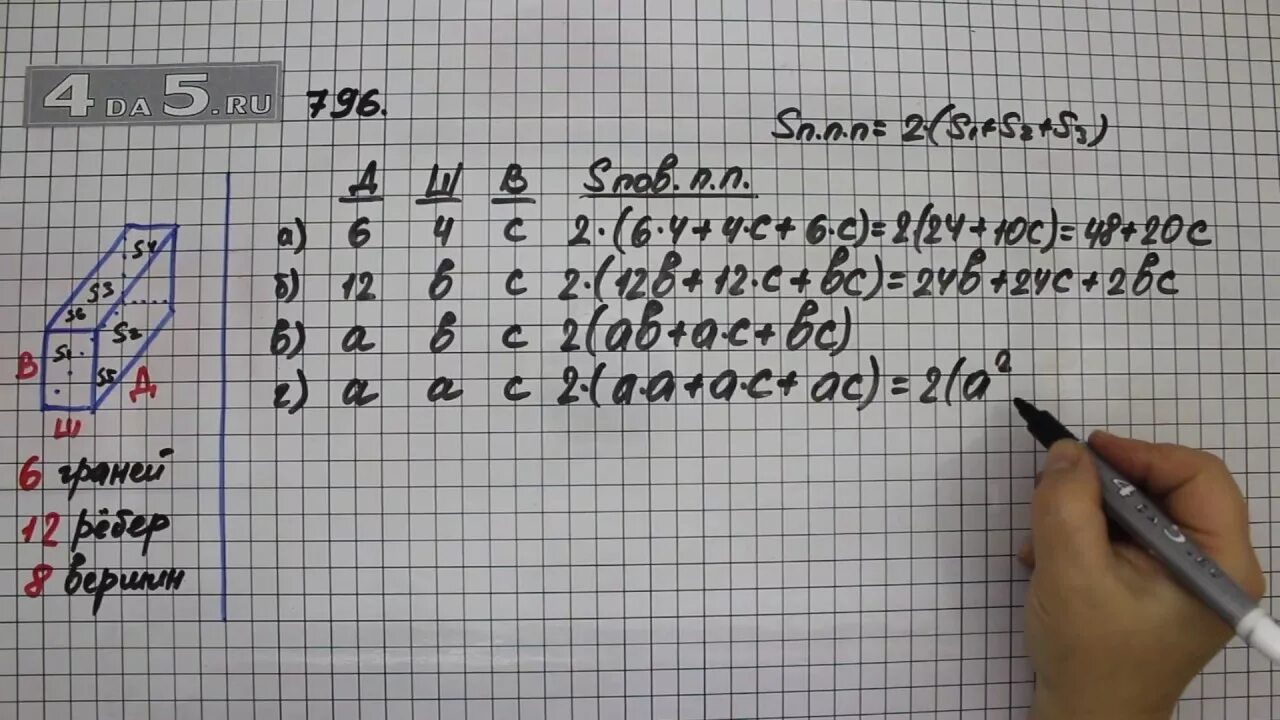 4 DA 5.RU 796.
Sп.п.п = 2·(S1+S2+S3)
Д Ш В Sпов.п.п.
а) 6 4 с 2·(6·4+4·с+6·с)=2(24+10с)=48+20с
б) 12 в с 2·(12в+12·с+вс)=24в+24с+2вс
в) а в с 2(ав+а·с+вс)
г) а а с 2·(а·а+а·с+ас)=2(а²
S4
S3
S6
S2
S1
S5
В
Д
Ш
6 граней
12 рёбер
8 вершин
4 DA 5.RU